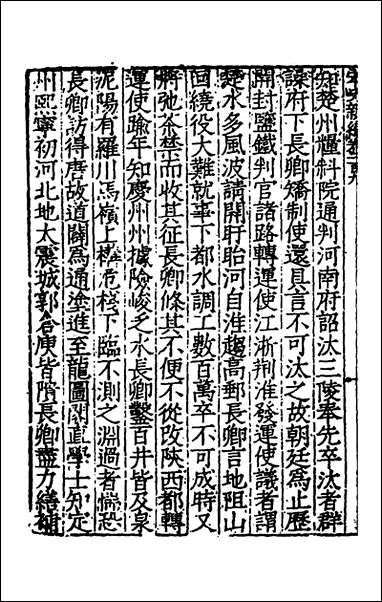 知楚州糧料院通判河南府詔汰三陵奉先卒汰者群
譟府下長卿矯制使還具言不可汰之故朝廷爲止歷
開封鹽鐵判官諸路轉運使江浙荆淮發運使議者謂
楚水多風波請開盱眙河自淮趨高郵長卿言地阻山
回繞役大難就事下都水調工數百萬卒不可成時又
將弛茶禁而收其征長卿條其不便不從改陝西都轉
運使踰年知慶州州據險峻乏水長卿鑿百井皆及泉
泥陽有羅川馬嶺上構危棧下臨不測之淵過者惴恐
長卿訪得唐故道闢爲通塗進至龍圖閣直學士知定
州熙寧初河北地太震城郭倉庾皆隤長卿盡力繕補